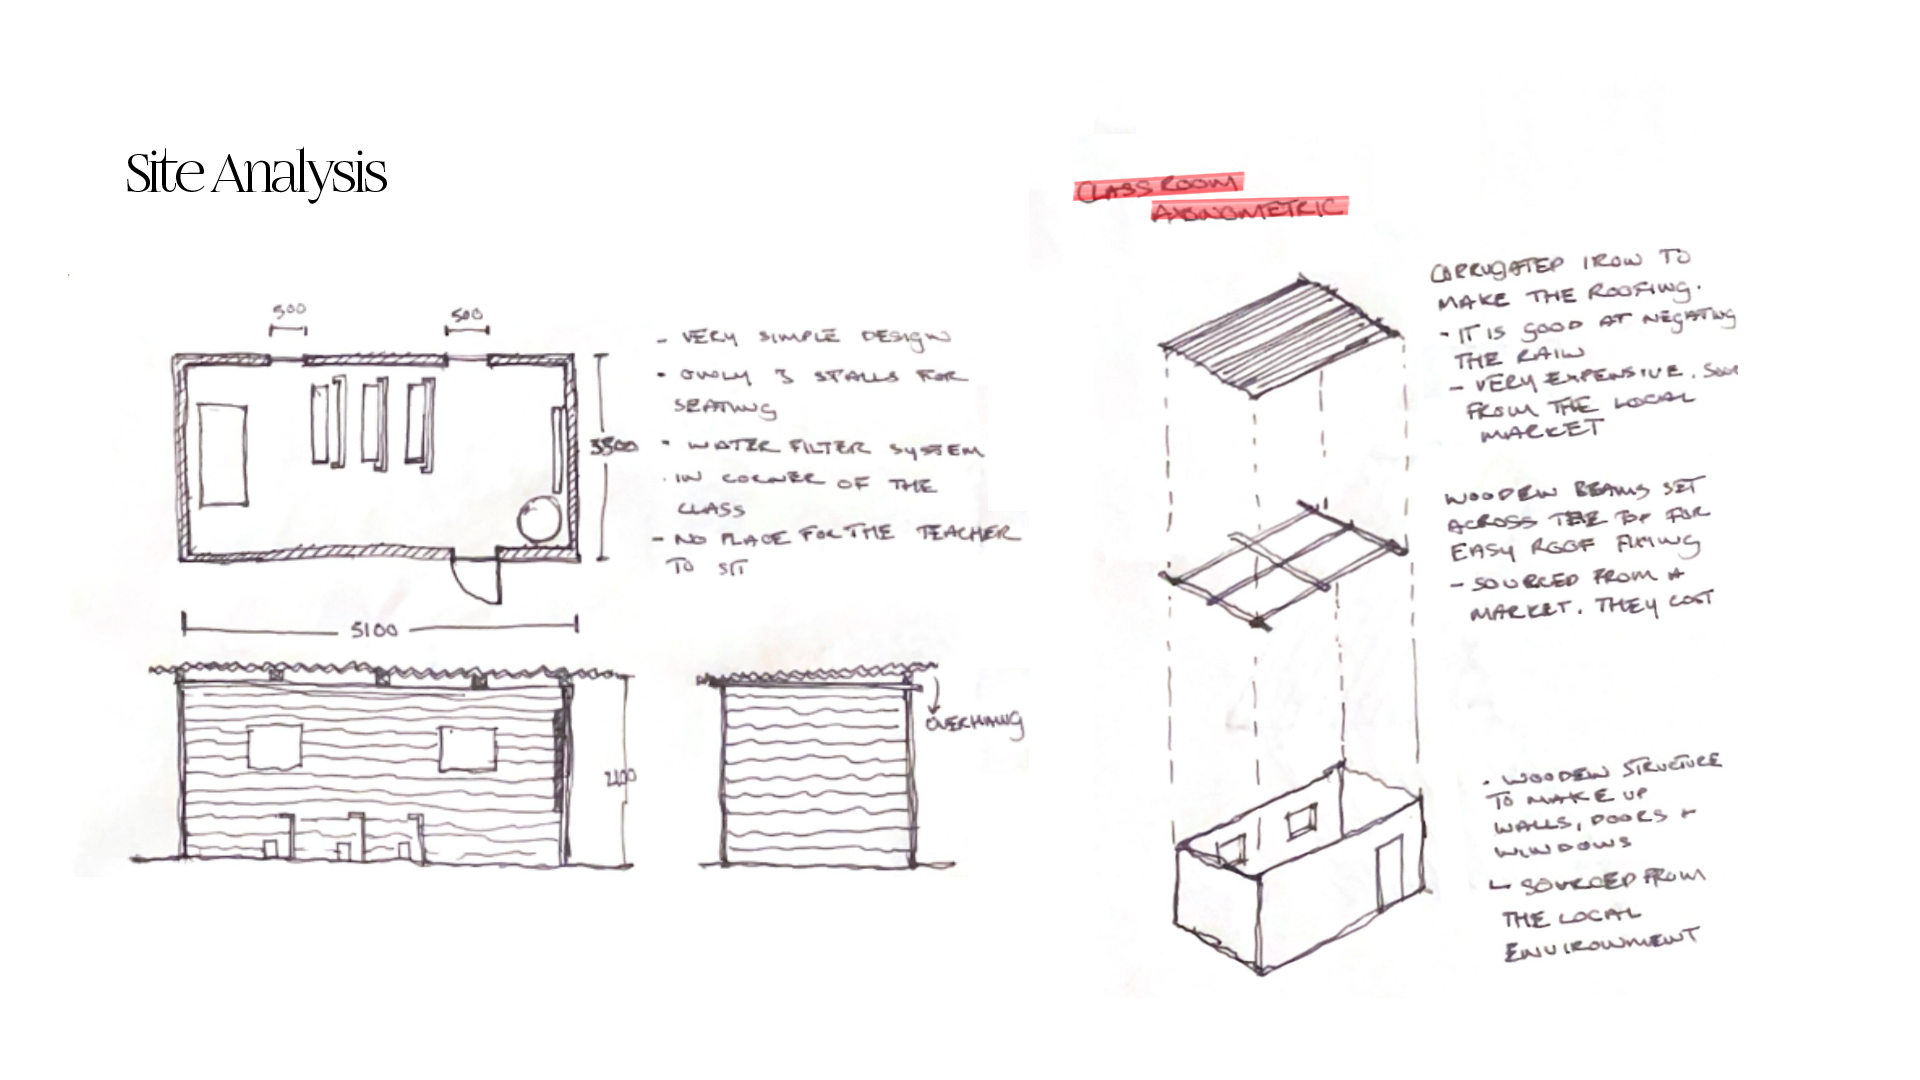 Site Analysis
500
500
3300
5100
- VERY SIMPLE DESIGN
- ONLY 3 STALLS FOR
SEATING
- WATER FILTER SYSTEM
- IN CORNER OF THE
CLASS
- NO PLACE FOR THE TEACHER
TO SIT
OVERHANG
CLASSROOM
AXONOMETRIC
CORRUGATED IRON TO
MAKE THE ROOFING.
- IT IS GOOD AT NEGATING
THE RAIN
- VERY EXPENSIVE.
FROM THE LOCAL
MARKET
WOODEN BEAMS SET
ACROSS THE TOP FOR
EASY ROOF FIXING
- SOURCED FROM A
MARKET. THEY COST
- WOODEN STRUCTURE
TO MAKE UP
WALLS, DOORS +
WINDOWS
↳ SOURCED FROM
THE LOCAL
ENVIRONMENT